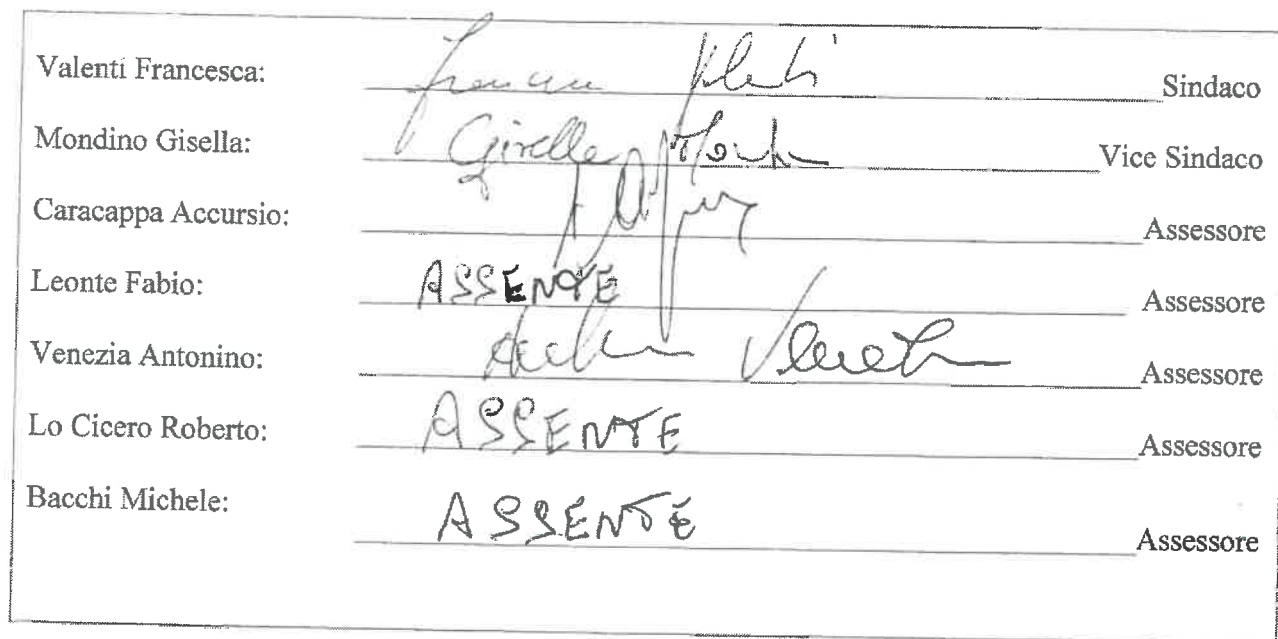 Valenti Francesca: Sindaco
Mondino Gisella: Gisella Vice Sindaco
Caracappa Accursio: Assessore
Leonte Fabio: ASSENTE Assessore
Venezia Antonino: Assessore
Lo Cicero Roberto: ASSENTE Assessore
Bacchi Michele: ASSENTE Assessore